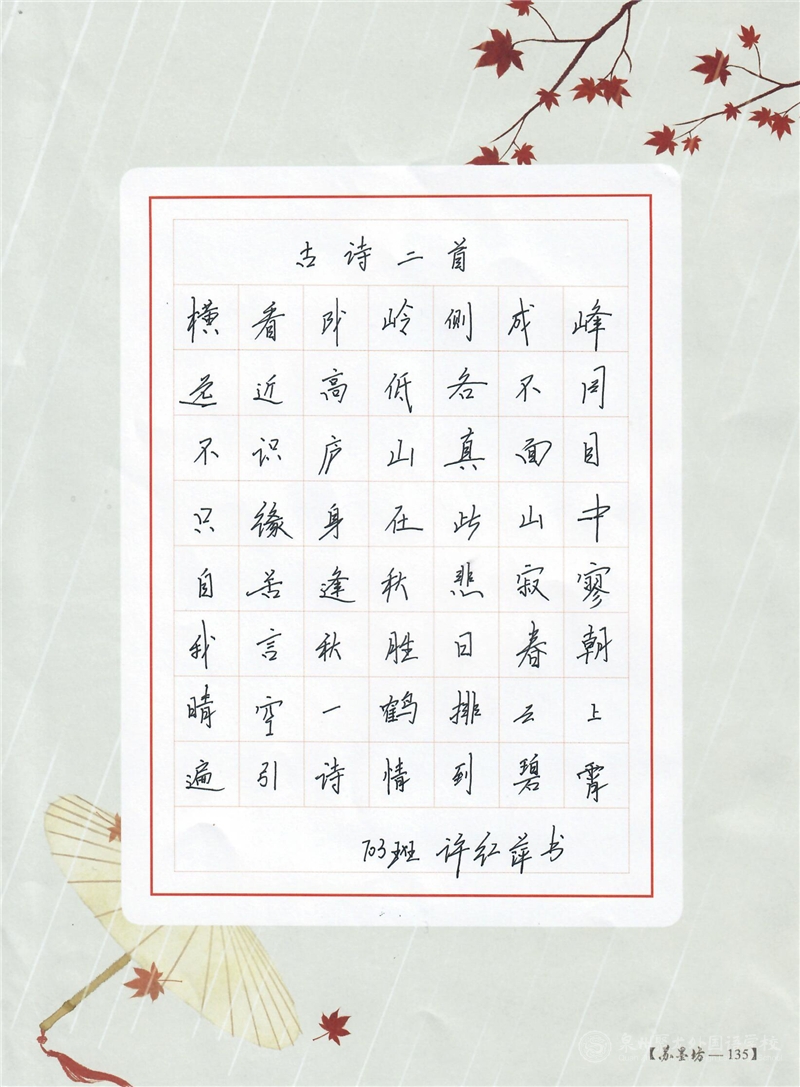 古诗二首
横看成岭侧成峰
远近高低各不同
不识庐山真面目
只缘身在此山中
自苦逢秋悲寂寥
我言秋胜日春朝
晴空一鹤排云上
遍引诗情到碧霄
703班 许红萍书
【苏墨坊—135】